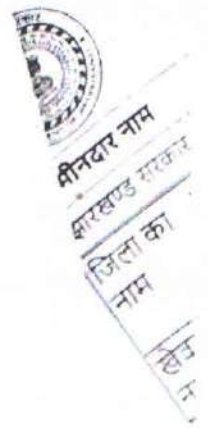 मीनदार नाम
झारखण्ड सरकार
जिला का
नाम